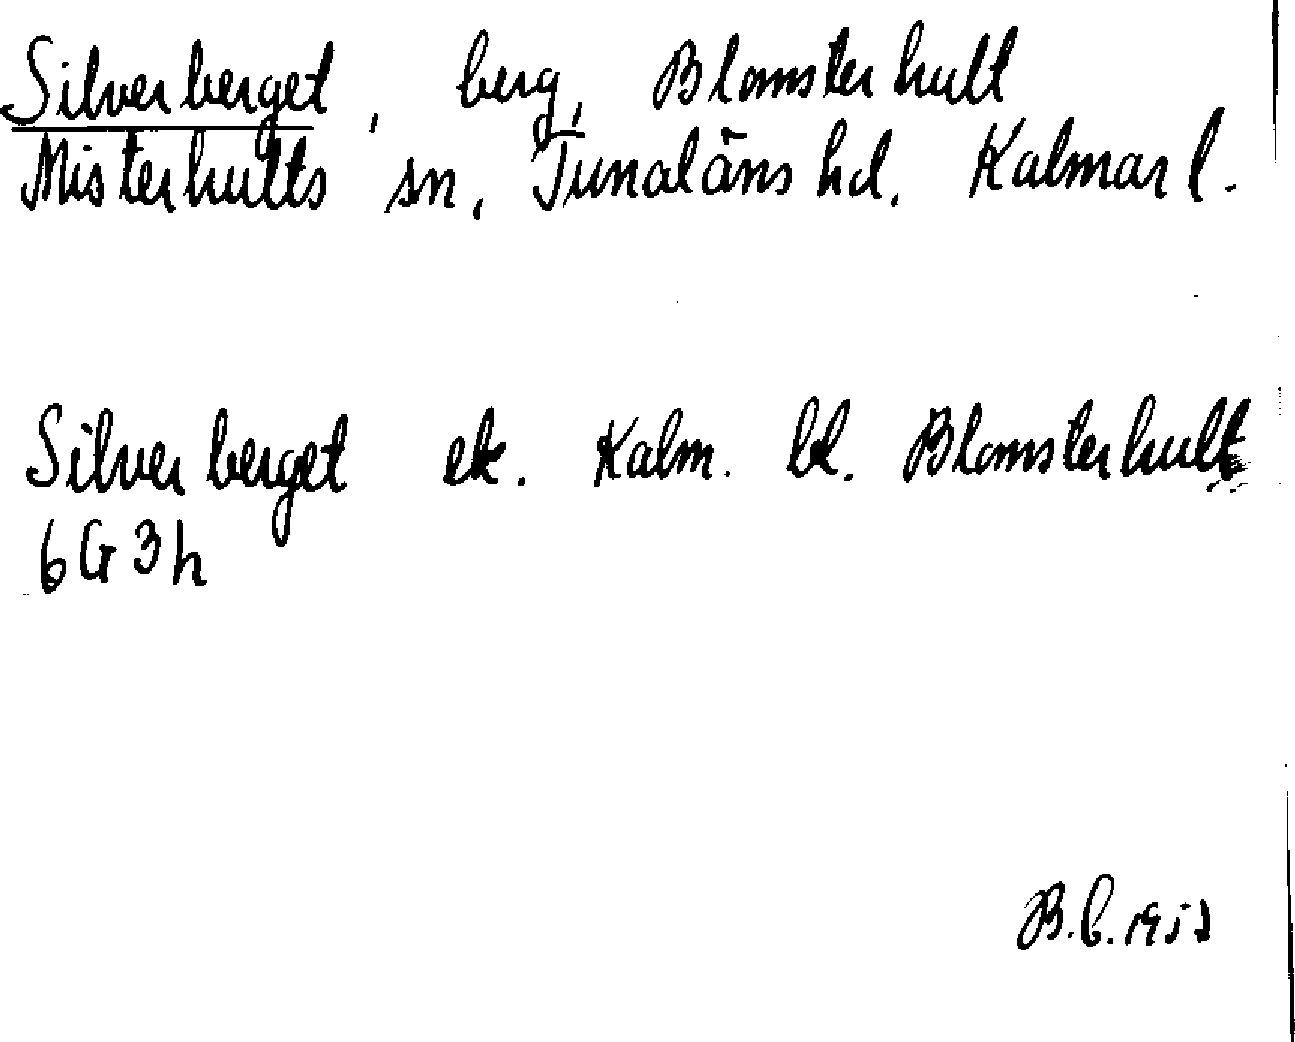 Silverberget, berg, Blomsterhult
Misterhults sn, Tunaläns hd. Kalmar l.
Silverberget ek. Kalm. bl. Blomsterhult
6G3h